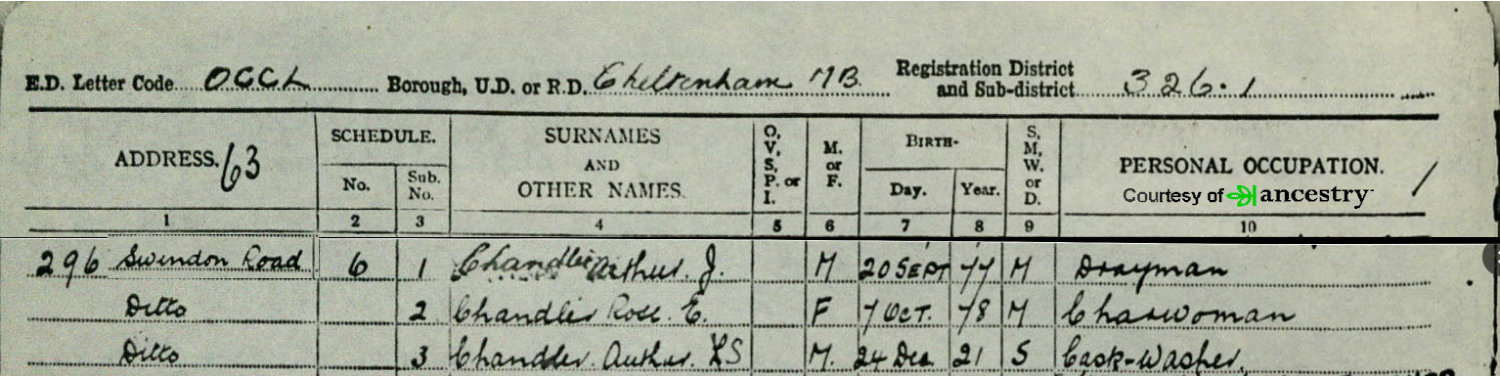 E.D. Letter Code OCCL Borough, U.D. or R.D. Cheltenham M.B. Registration District and Sub-district 326.1
ADDRESS. 63 SCHEDULE. No. Sub. No. SURNAMES AND OTHER NAMES. O, V, S, P. or I. M. or F. BIRTH- Day. Year. S, M, W. or D. PERSONAL OCCUPATION. /
Courtesy of ancestry
1 2 3 4 5 6 7 8 9 10
296 Swindon Road 6 1 Chandler Arthur. J. M 20 SEPT 77 M Drayman
Ditto 2 Chandler Rose. E. F 7 OCT. 78 M Charwoman
Ditto 3 Chandler. Arthur. M. 24 Dec 21 S Cask-Washer.